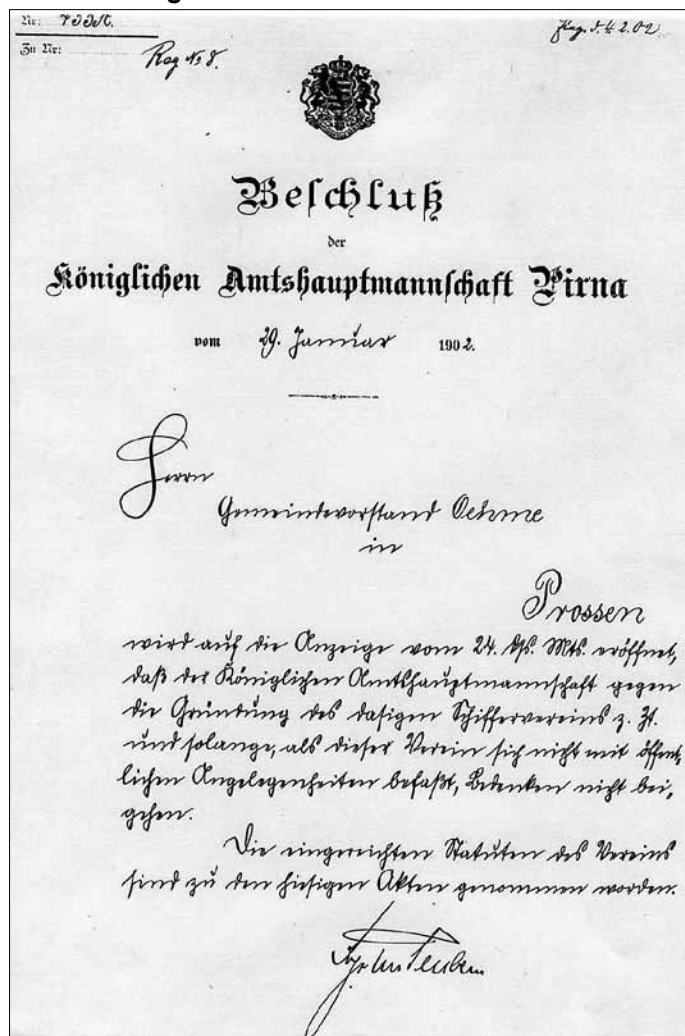 Nr:
Zu Nr:
Reg № 8.
Beschluß
der
Königlichen Amtshauptmannschaft Pirna
vom 29. Januar 1902.
Herrn
Gemeindevorstand Oehme
in
Prossen
wird auf die Anzeige vom 24. ds. Mts. eröffnet,
daß der Königlichen Amtshauptmannschaft gegen
die Gründung des dasigen Schiffervereins z. Zt.
und solange, als dieser Verein sich nicht mit öffent-
lichen Angelegenheiten befaßt, Bedenken nicht bei-
gehen.
Die eingereichten Statuten des Vereins
sind zu den hiesigen Akten genommen worden.